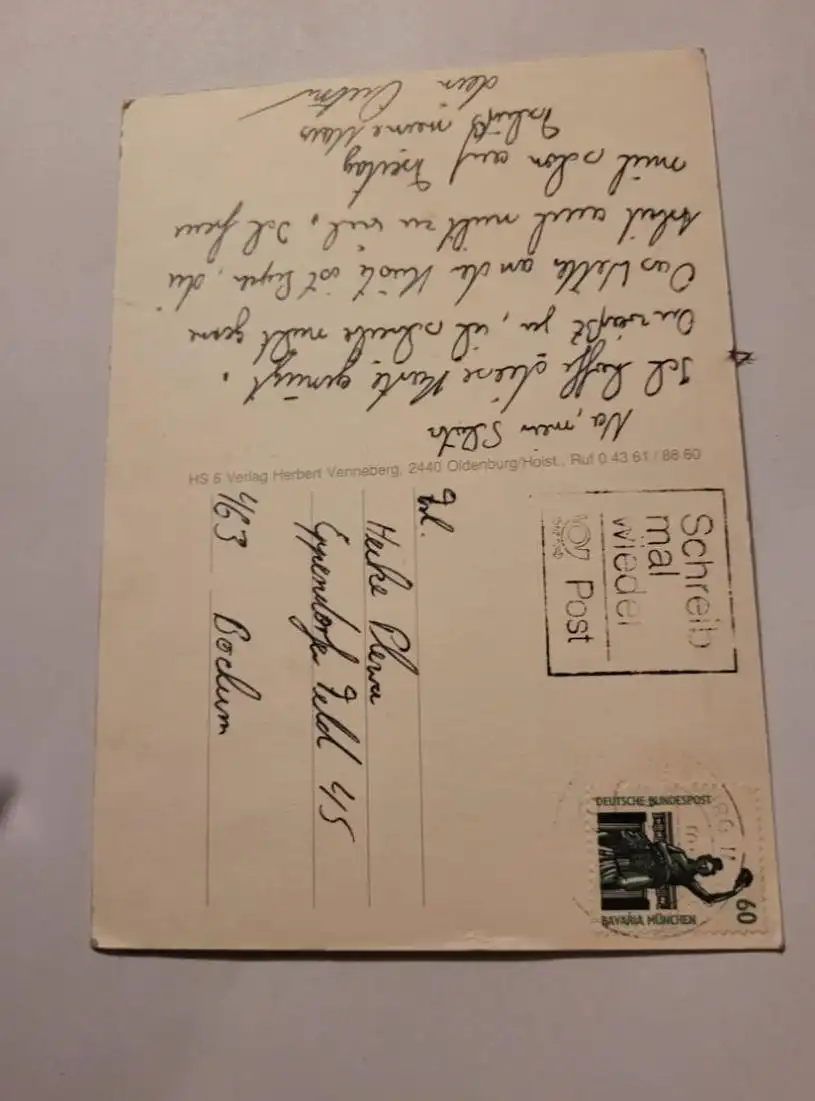 Na, mein Schatz
Ich hoffe diese Karte genügt.
Du weißt ja, ich schreibe nicht gern
Das Wetter an der Küste ist super, die
Arbeit auch nicht zu viel. Ich freu
mich schon auf Freitag
Tschüß meine Maus
dein
HS 6 Verlag Herbert Venneberg, 2440 Oldenburg/Holst., Ruf 0 43 61 / 88 60
Schreib
mal
wieder
Post
DEUTSCHE BUNDESPOST
60
BAVARIA MÜNCHEN
Frl.
Heike Plewa
Eppendorfer Feld 45
463 Bochum